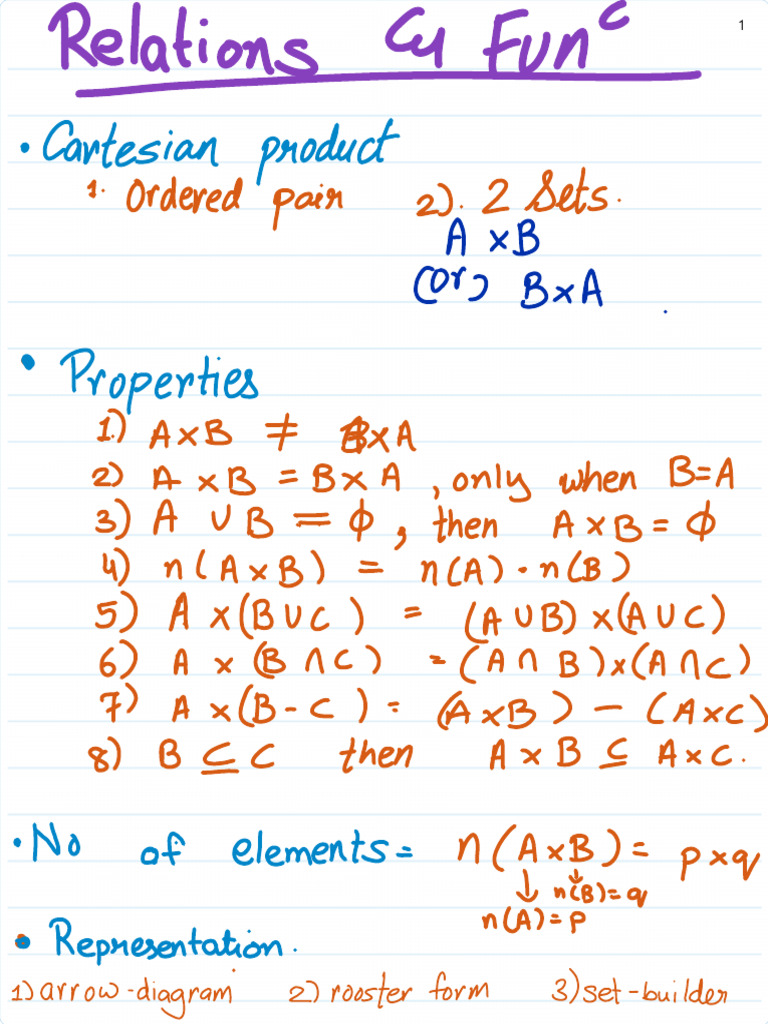 1
Relations & Func
• Cartesian product
1. Ordered pair 2). 2 Sets.
A × B
(or) B × A
• Properties
1) A × B ≠ B × A
2) A × B = B × A , only when B = A
3) A ∪ B = ϕ , then A × B = ϕ
4) n(A × B) = n(A) · n(B)
5) A × (B ∪ C) = (A ∪ B) × (A ∪ C)
6) A × (B ∩ C) = (A ∩ B) × (A ∩ C)
7) A × (B - C) = (A × B) - (A × C)
8) B ⊆ C then A × B ⊆ A × C.
• No of elements = n(A × B) = p × q
n(B) = q
n(A) = p
• Representation.
1) arrow-diagram 2) rooster form 3) set-builder